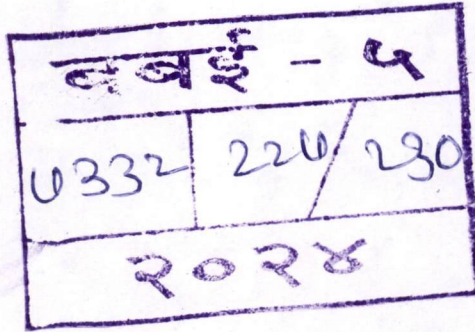 बबई - ५
७३३२ २२७/२३०
२०२४